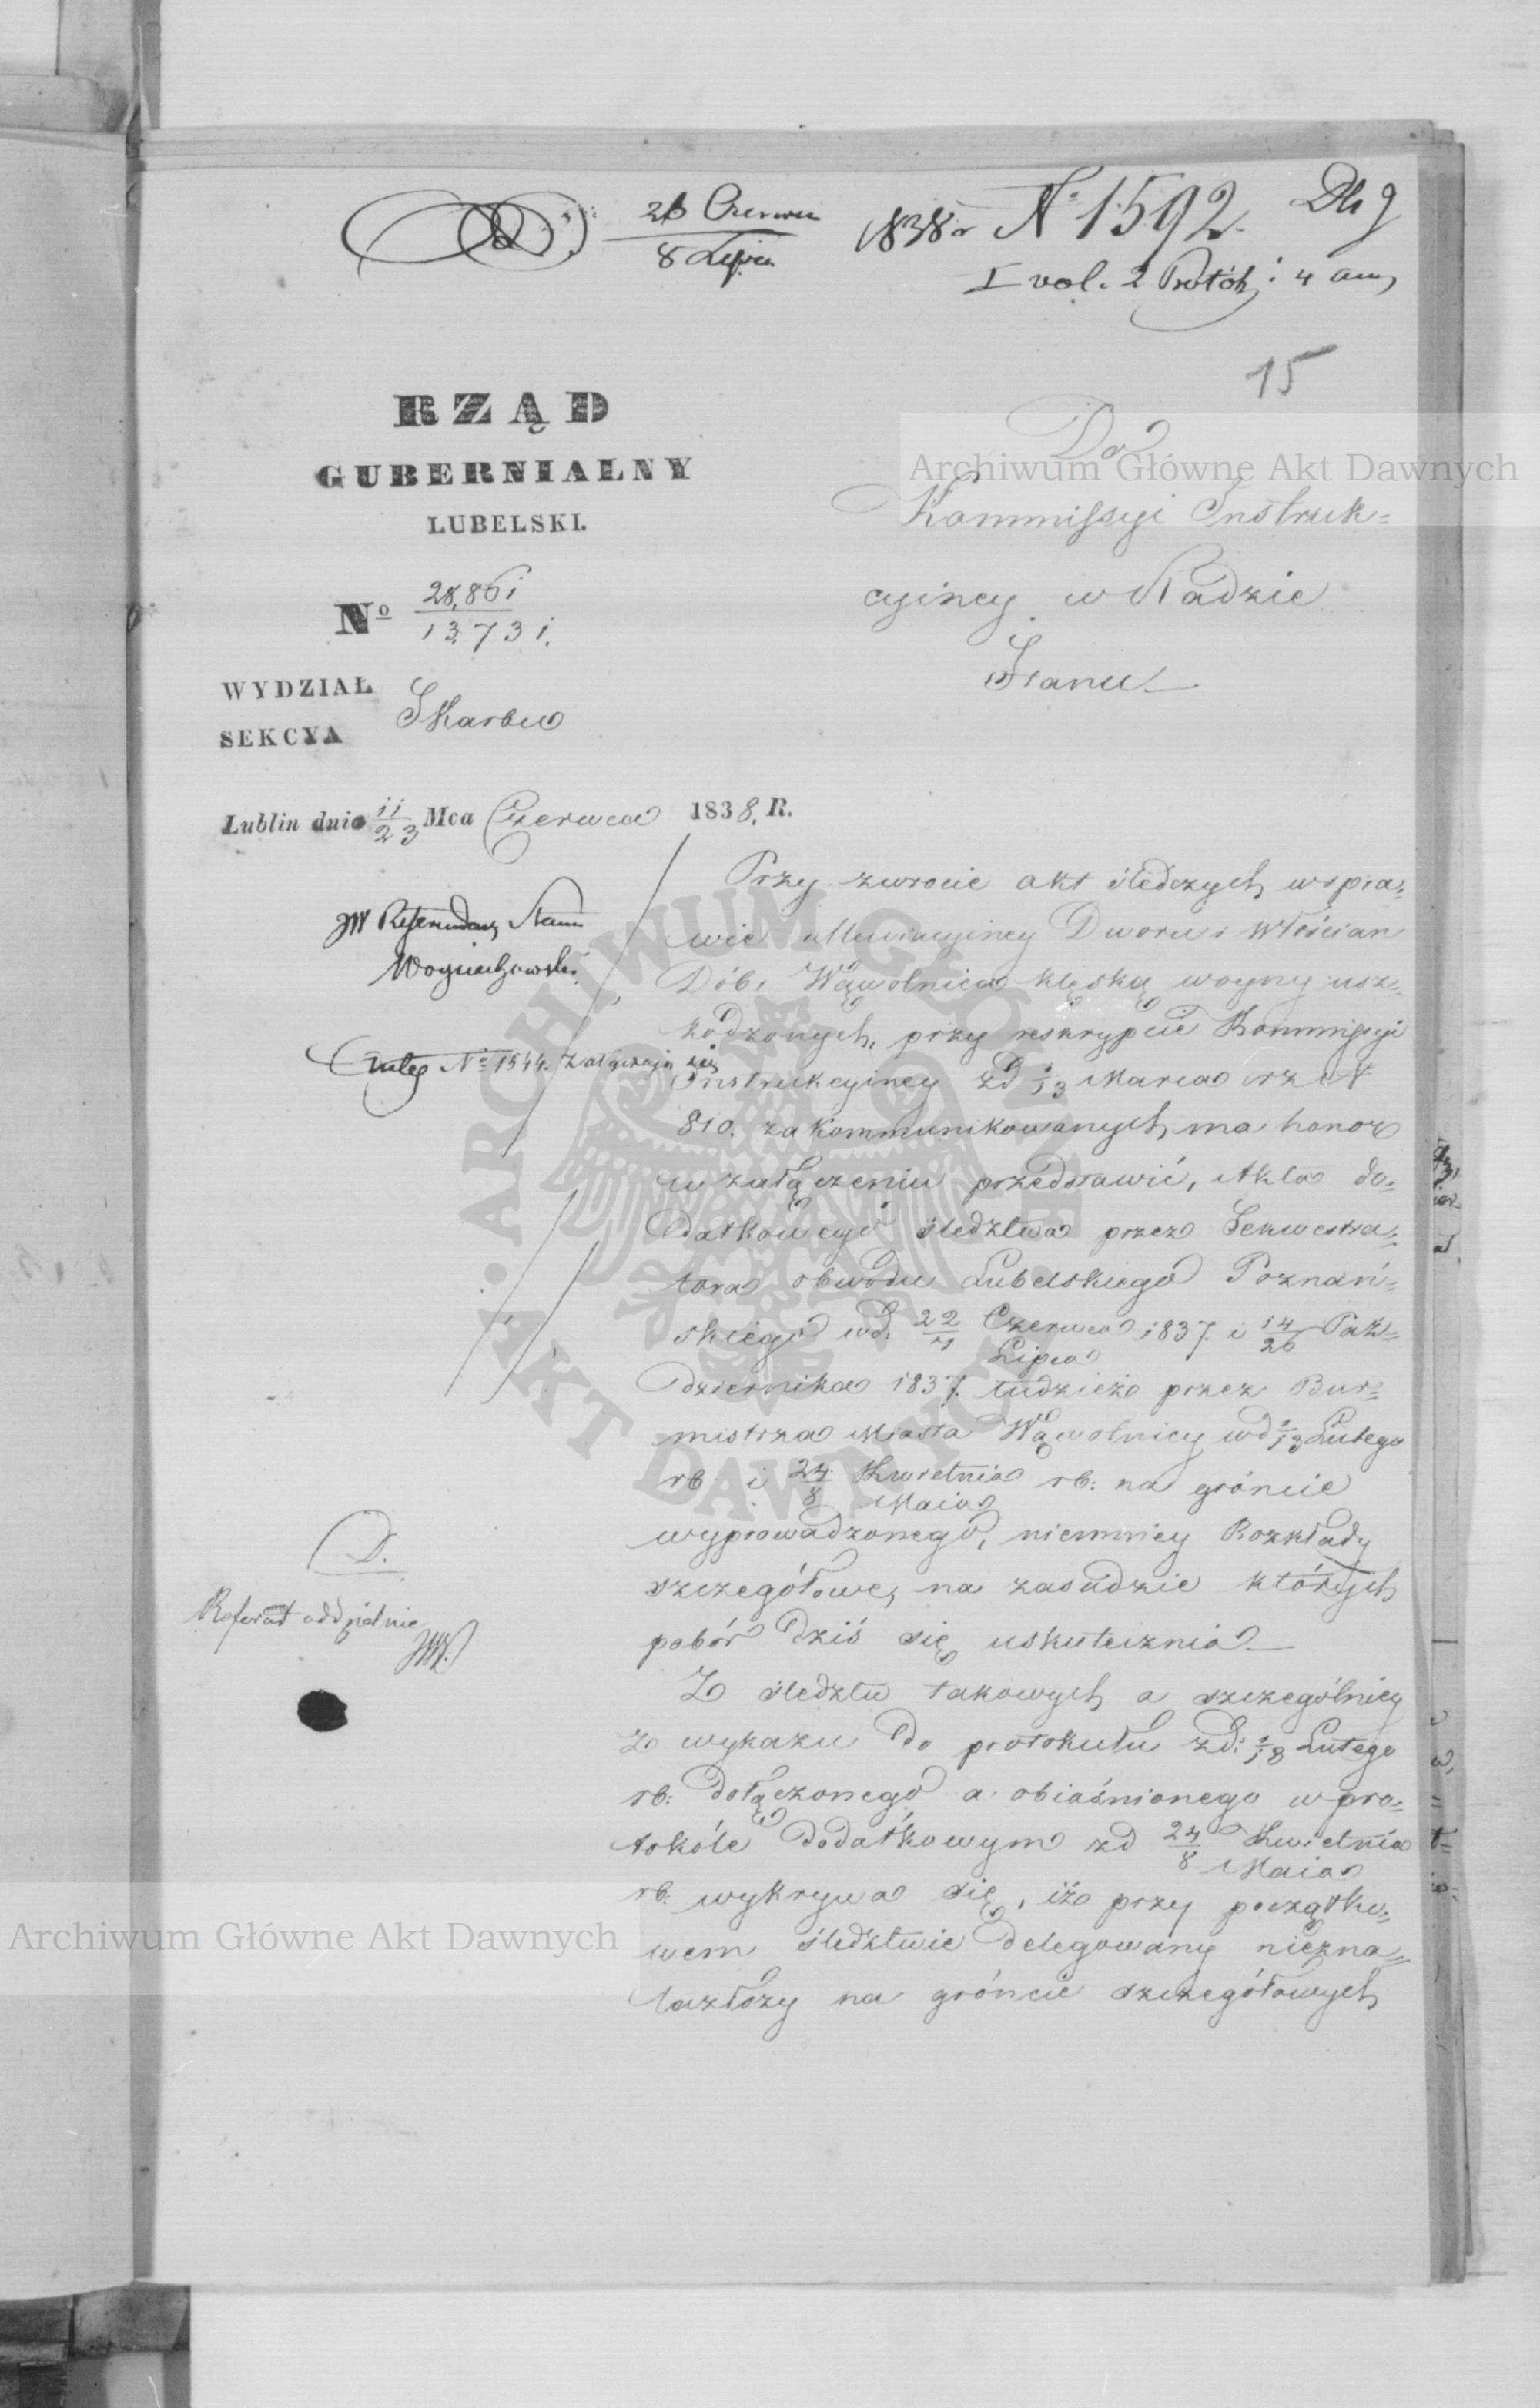 26 Czerwca
8 Lipca
1838 r
No 1592.
I vol. 2
15
RZĄD
GUBERNIALNY
LUBELSKI.
No 28,861
13731.
WYDZIAŁ
SEKCYA
Skarbu
Lublin dnia 11/23 Mca Czerwca 1838. R.
Do
Kommissyi Instruk=
cyiney w Radzie
Stanu
JW Referendarz Stanu
Wojciechowski.
No 1544. załączają się
D.
Referat oddzielnie
Przy zwrocie akt śledczych w spra=
wie allewiacyiney Dworu i Włościan
Dóbr Wąwolnica klęską woyny usz=
kodzonych, przy reskrypcie Kommissyi
Instrukcyiney z d 1/13 Marca r z N
810. zakommunikowanych, ma honor
w załączeniu przedstawić, Akta do=
datkowego śledztwa przez Sekwestra=
tora obwodu Lubelskiego Poznań=
skiego w d. 22/4 Czerwca/Lipca 1837. i 14/26 Paź=
dziernika 1837. tudzież przez Bur=
mistrza Miasta Wąwolnicy w d 1/13 Lutego
rb. i 24/8 Kwietnia/Maia rb: na gróncie
wyprowadzonego, niemniey Rozkłady
szczegółowe, na zasadzie których
pobór dziś się uskutecznia
Z śledztw takowych a szczególniey
z wykazu do protokułu z d: Lutego
rb: dołączonego a obiaśnionego w pro=
tokóle dodatkowym z d 24/8 Kwietnia/Maia
rb: wykrywa się, iż przy początko=
wem śledztwie delegowany niezna=
lazłszy na gróncie szczegółowych
Archiwum Główne Akt Dawnych
Archiwum Główne Akt Dawnych
ARCHIWUM GŁÓWNE AKT DAWNYCH